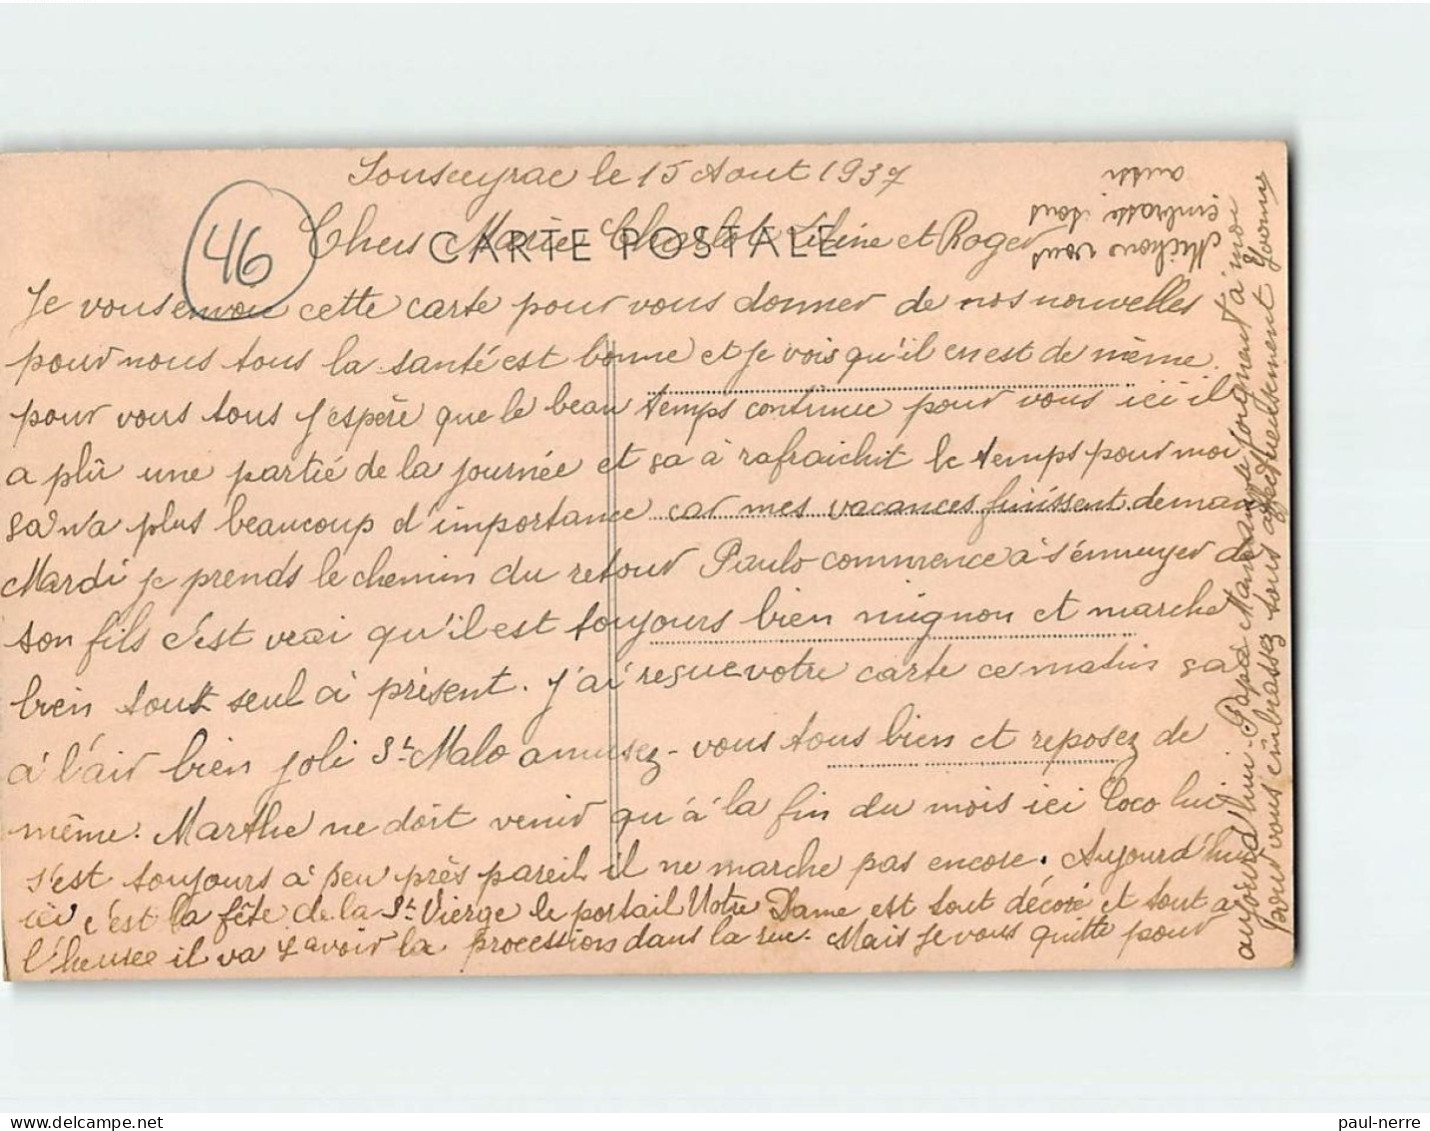 Sousceyrac le 15 Aout 1937
46
CARTE POSTALE
Chers Marie Charlot Liline et Roger
Je vous envou cette carte pour vous donner de nos nouvelles
pour nous tous la santé est bonne et je vois qu'il en est de même
pour vous tous j'espère que le beau temps continue pour vous ici il
a plû une partié de la journée et sa à rafraichit le temps pour moi
sa n'a plus beaucoup d'importance car mes vacances finissent demain
Mardi je prends le chemin du retour Paulo commence à s'ennuyer de
son fils c'est vrai qu'il est toujours bien mignon et marche
bien tout seul à présent. J'ai reçue votre carte ce matin sa
à l'air bien joli St Malo amusez-vous tous bien et reposez de
même. Marthe ne doit venir qu'à la fin du mois ici Coco lui
s'est toujours à peu près pareil il ne marche pas encore. Aujourd'hui
ici c'est la fête de la Ste Vierge le portail Notre Dame est tout décoré et tout à
l'heure il va y avoir la procession dans la rue. Mais je vous quitte pour
aujourd'hui. Papa Maman se joignent à moi
pour vous embrassez tous affectueusement Yvonne
Michou vous
embrasse tous
aussi
paul-nerre